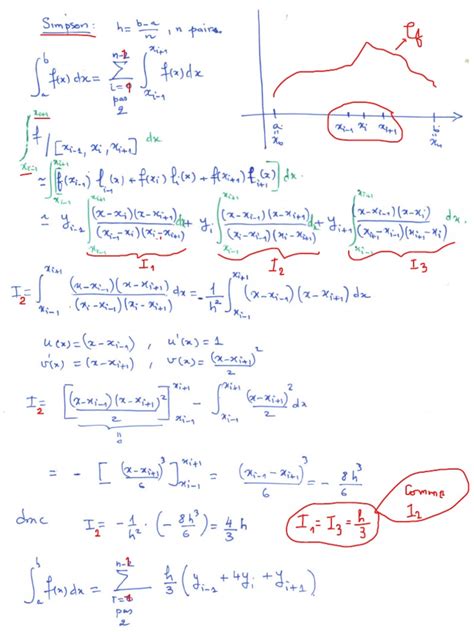 Simpson: h = (b-a)/n , n pair
∫_a^b f(x) dx = Σ_{i=1}^{n-1} ∫_{x_{i-1}}^{x_{i+1}} f(x) dx
pas 2
C_f
a = x_0   x_{i-1}   x_i   x_{i+1}   b = x_n
∫_{x_{i-1}}^{x_{i+1}} f/[x_{i-1}, x_i, x_{i+1}] dx
≃ ∫ [f(x_{i-1}) l_{i-1}(x) + f(x_i) l_i(x) + f(x_{i+1}) l_{i+1}(x)] dx
≃ y_{i-1} ∫_{x_{i-1}}^{x_{i+1}} (x-x_i)(x-x_{i+1}) / (x_{i-1}-x_i)(x_{i-1}-x_{i+1}) dx + y_i ∫_{x_{i-1}}^{x_{i+1}} (x-x_{i-1})(x-x_{i+1}) / (x_i-x_{i-1})(x_i-x_{i+1}) dx + y_{i+1} ∫_{x_{i-1}}^{x_{i+1}} (x-x_{i-1})(x-x_i) / (x_{i+1}-x_{i-1})(x_{i+1}-x_i) dx
I_1   I_2   I_3
I_2 = ∫_{x_{i-1}}^{x_{i+1}} (x-x_{i-1})(x-x_{i+1}) / (x_i-x_{i-1})(x_i-x_{i+1}) dx = -1/h² ∫_{x_{i-1}}^{x_{i+1}} (x-x_{i-1})(x-x_{i+1}) dx
u(x) = (x-x_{i-1}) , u'(x) = 1
v'(x) = (x-x_{i+1}) , v(x) = (x-x_{i+1})²/2
I_2 = [(x-x_{i-1})(x-x_{i+1})²/2]_{x_{i-1}}^{x_{i+1}} - ∫_{x_{i-1}}^{x_{i+1}} (x-x_{i+1})²/2 dx
= 0
= - [(x-x_{i+1})³/6]_{x_{i-1}}^{x_{i+1}} = (x_{i-1}-x_{i+1})³/6 = - 8h³/6
donc I_2 = -1/h² · (-8h³/6) = 4/3 h
I_1 = I_3 = h/3
Comme I_2
∫_a^b f(x) dx = Σ_{i=1}^{n-1} h/3 (y_{i-1} + 4y_i + y_{i+1})
pas 2